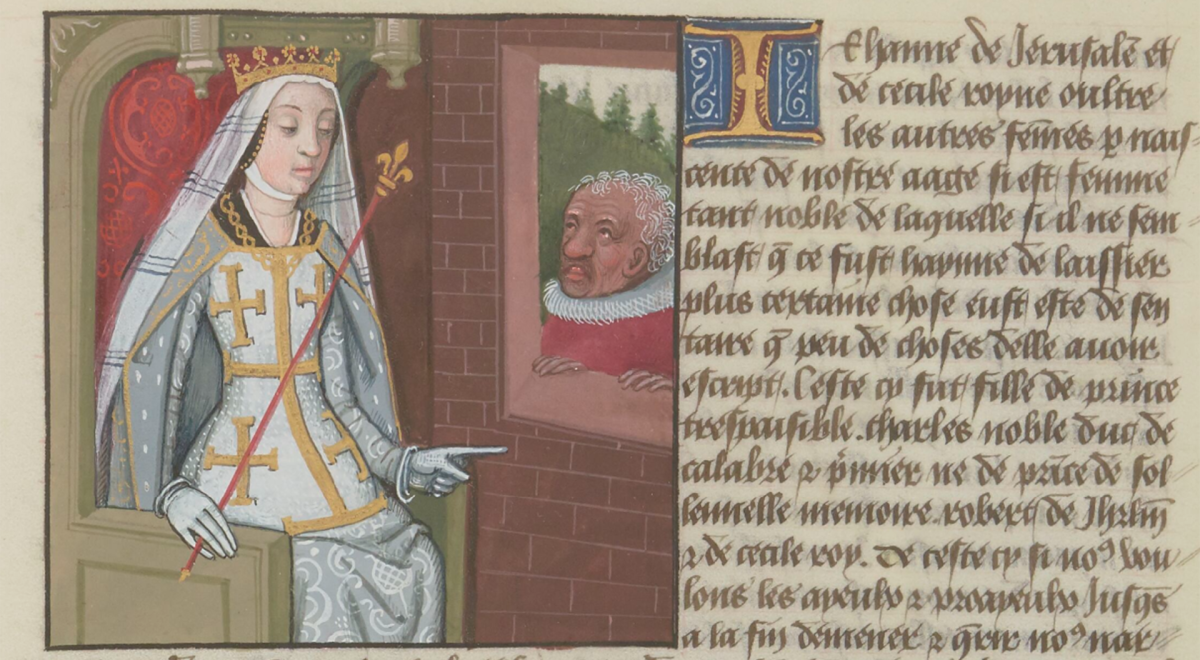 Iehanne de Jerusalē et
de cecile royne oultre
les autres fēmes p nais-
cence de nostre aage si est femme
tant noble de laquelle si il ne sem-
blast q̄ ce fust haynne de laissier
plus certaine chose eust este de sen
taire q̄ peu de choses delle auoir
escript. Ceste cy fut fille de prince
trespaisible. charles noble duc de
calabre ⁊ p̄mier ne de prīce de sol
lennelle memoire. robert de Jhrlm̄
⁊ de cecile roy. De ceste cy si noꝰ vou
lons les ayeulx ⁊ proayeulx Jusq̄s
a la fin demener ⁊ q̄rir noꝰ